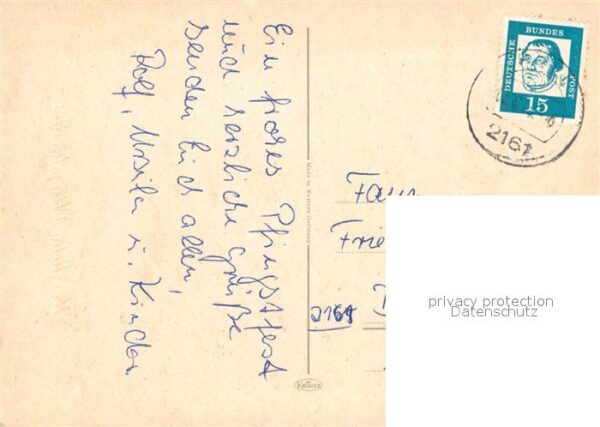 Ein frohes Pfingstfest
und herzliche Grüße
senden Euch allen,
Rolf, Ursula u. Kinder
Fam
Frie
2161
DEUTSCHE
BUNDES
POST
15
2161
Made in Western Germany
privacy protection
Datenschutz